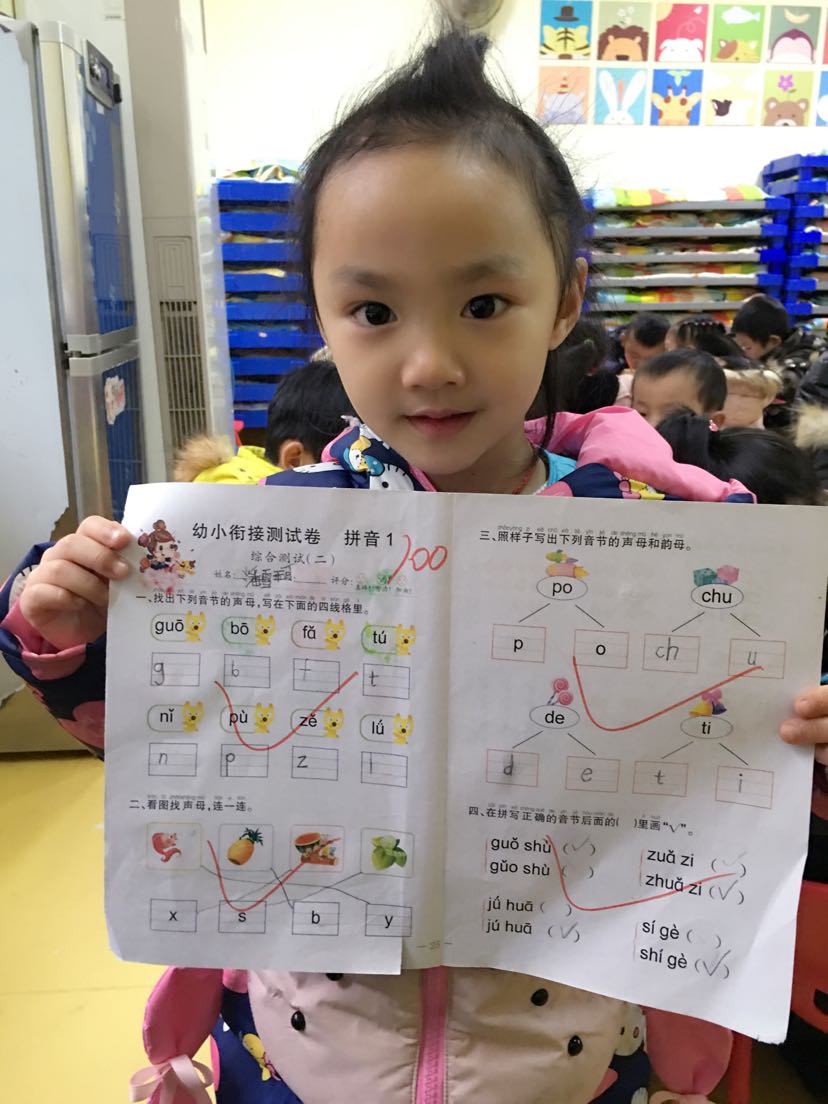 幼小衔接测试卷 拼音1
100
综合测试(二)
姓名: 评分:
一、找出下列音节的声母,写在下面的四线格里。
guō bō fǎ tú
g b f t
nǐ pù zě lǘ
n p z l
二、看图找声母,连一连。
x s b y
- 25 -
三、照样子写出下列音节的声母和韵母。
po chu
p o ch u
de ti
d e t i
四、在拼写正确的音节后面的( )里画“√”。
guǒ shù (√)
gǔo shù ( )
jǘ huā ( )
jú huā (√)
zuǎ zi ( )
zhuǎ zi (√)
sí gè ( )
shí gè (√)